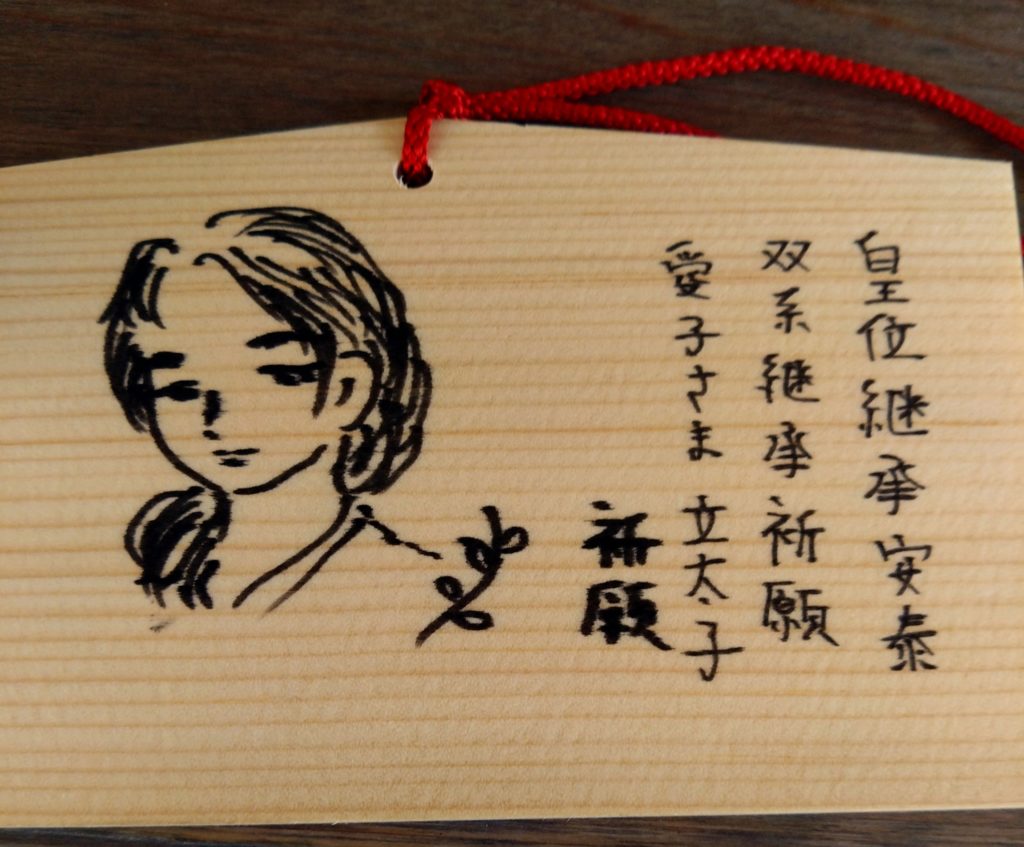 皇位継承安泰
双系継承祈願
愛子さま 立太子
祈願